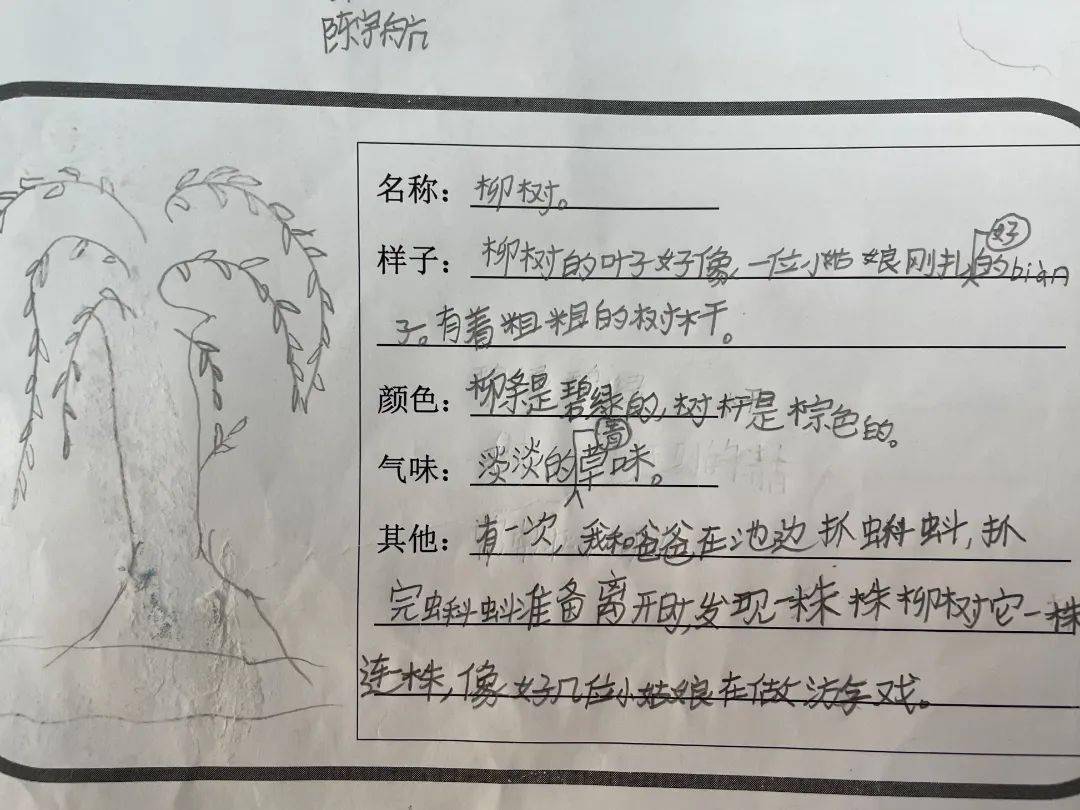 陈宇航
名称：柳树。
样子：柳树的叶子好像一位小姑娘刚扎好的bian
子。有着粗粗的树干。
颜色：柳条是碧绿的，树杆是棕色的。
气味：淡淡的青草味。
其他：有一次，我和爸爸在池边抓蝌蚪，抓
完蝌蚪准备离开时，发现一株株柳树它一株
连一株，像好几位小姑娘在做游戏。